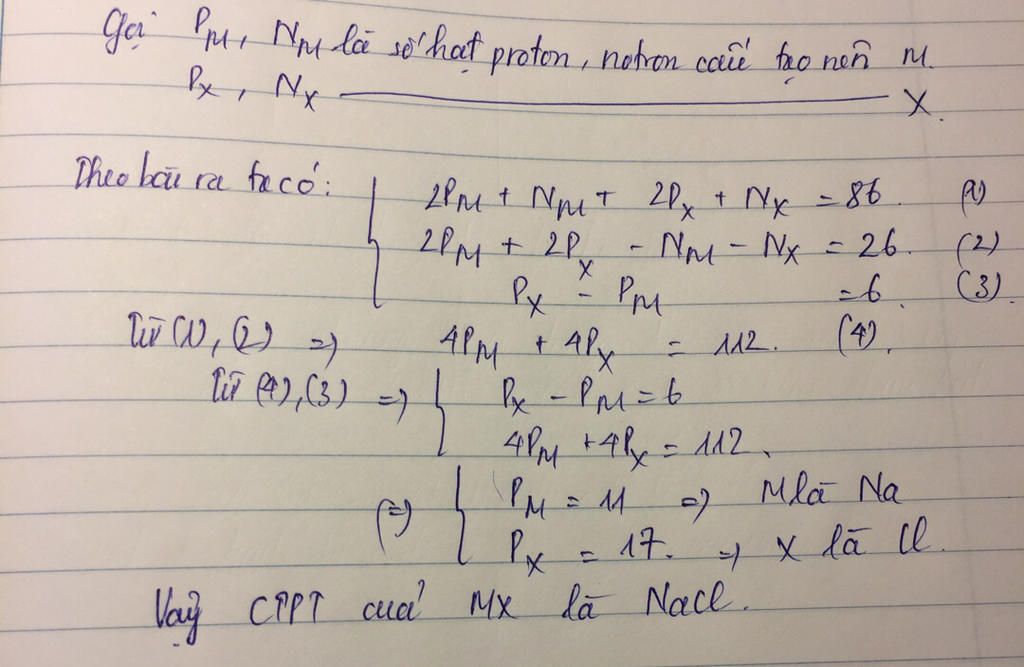 Gọi P_M, N_M là số hạt proton, notron cấu tạo nên M.
P_X, N_X ——— X.
Theo bài ra ta có: { 2P_M + N_M + 2P_X + N_X = 86. (1)
2P_M + 2P_X - N_M - N_X = 26. (2)
P_X - P_M = 6. (3).
Từ (1), (2) => 4P_M + 4P_X = 112. (4).
Từ (4), (3) => { P_X - P_M = 6
4P_M + 4P_X = 112.
(=) { P_M = 11 => M là Na
P_X = 17. => X là Cl.
Vậy CTPT của MX là NaCl.